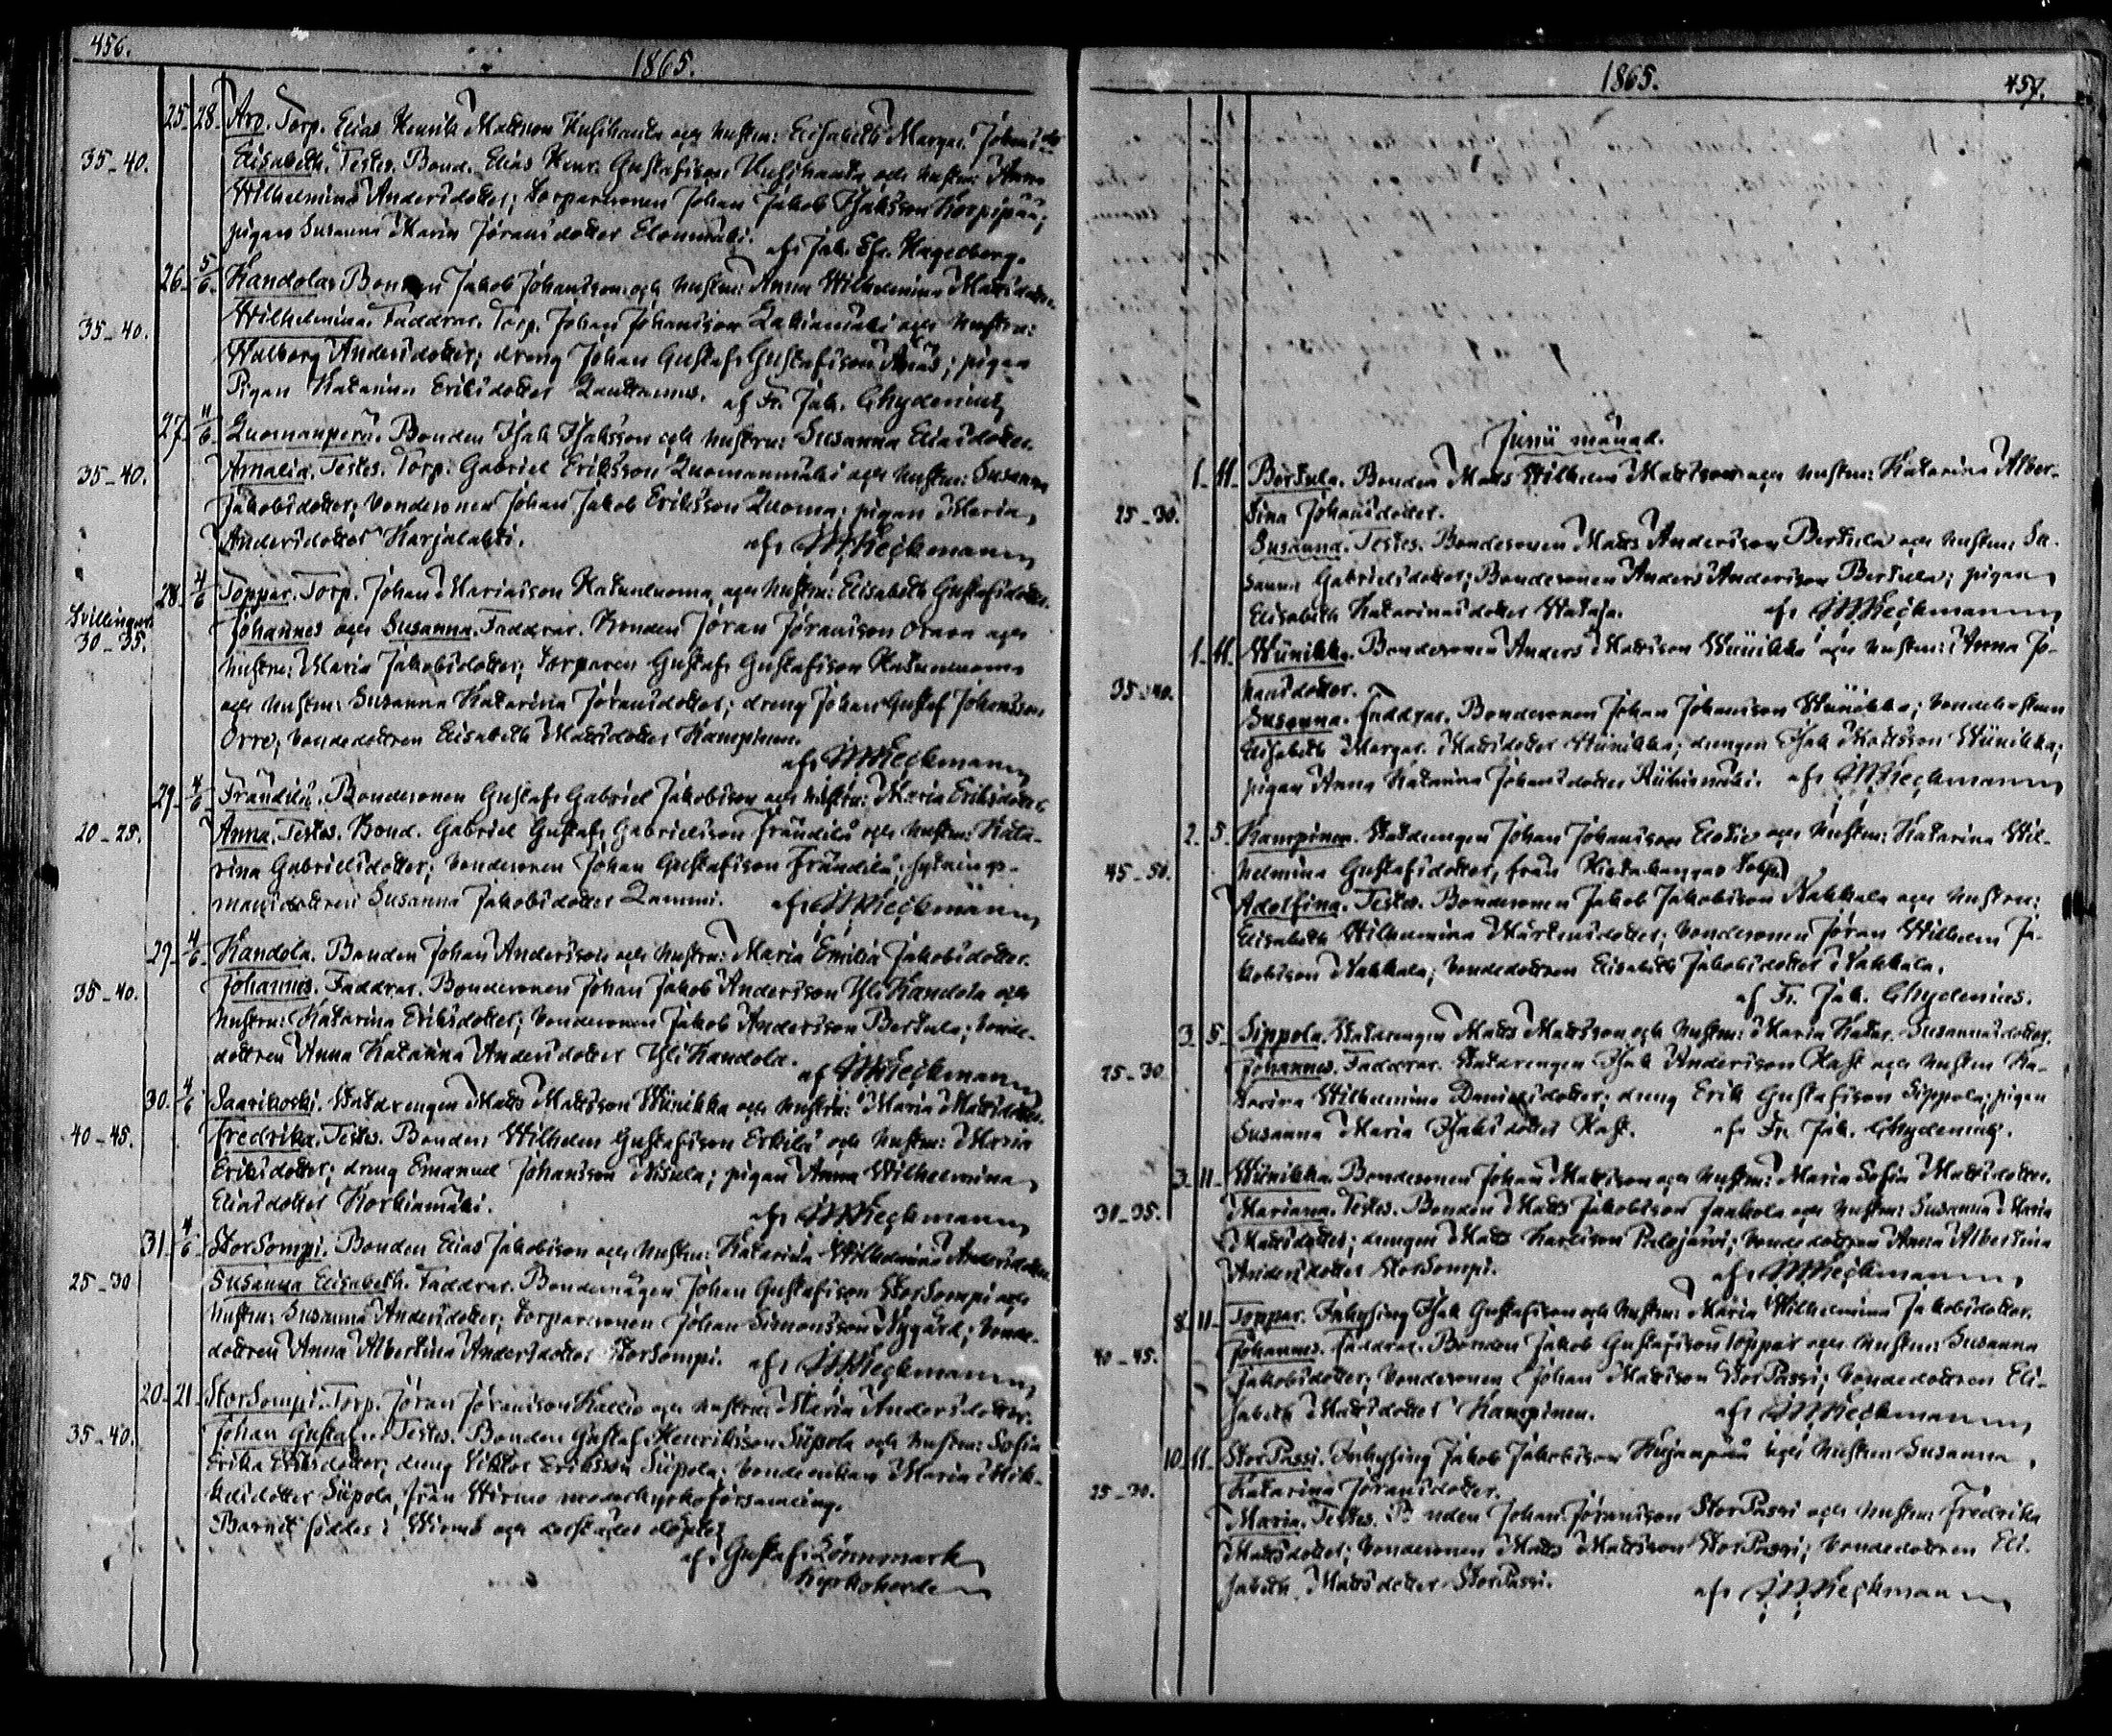 456.
1865.
25. 28. Arp. Torp. Elias Henrik Mattsson och hustru: Elisabeth Margar. Johansdr
35-40. Elisabeth. Testes. Bond. Elias Henr. Gustafsson och hustru: Anna
Wilhelmina Andersdotter; torparesonen Johan Jakob Isaksson Korpipää;
pigan Susanna Maria Jöransdotter Elommäki.
af Jak. Efr. Hagelberg.
26. 5/6. Kandola. Bonden Jakob Johansson och hustru: Anna Wilhelmina Mattsdotter.
35-40. Wilhelmina. Faddrar. Torp. Johan Johansson och hustru:
Walborg Andersdotter; dreng Johan Gustaf Gustafsson; pigan
Pigan Katarina Eriksdotter
af Fr. Jak. Chydenius
27. 11/6. Luomanperä. Bonden Isak Isaksson och hustru: Susanna Eliasdotter.
35-40. Amalia. Testes. Torp. Gabriel Eriksson Luomanmäki och hustru: Susanna
Jakobsdotter; bondesonen Johan Jakob Eriksson Luoma; pigan Maria
Andersdotter Karjalahti.
af Heckmann
28. 4/6 Toppar. Torp. Johan Mariasson Katunluoma och hustru: Elisabeth Gustafsdotter.
Tvillingar.
30-35. Johannes och Susanna. Faddrar. Bonden Jöran Jöransson och
hustru: Maria Jakobsdotter; torparen Gustaf Gustafsson Katunluoma
och hustru: Susanna Katarina Jöransdotter; dreng Johan Gustaf Johansson
Orre; bondedottren Elisabeth Mattsdotter Kamppinen.
af Heckmann
29. 4/6 Frändilä. Bondesonen Gustaf Gabriel Jakobsson och hustru: Maria Eriksdotter.
20-25. Anna. Testes. Bond. Gabriel Gustaf Gabrielsson Frändilä och hustru: Kata-
rina Gabrielsdotter; bondesonen Johan Gustafsson Frändilä; sytnings-
mansdottren Susanna Jakobsdotter Lammi.
af Heckmann
29. 4/6 Kandola. Bonden Johan Andersson och hustru: Maria Emilia Jakobsdotter.
35-40. Johannes. Faddrar. Bondesonen Johan Jakob Andersson YliKandola och
hustru: Katarina Eriksdotter; bondesonen Jakob Andersson Bertula; bonde-
dottren Anna Katarina Andersdotter YliKandola.
af Heckmann
30. 4/6 Saarikoski. Statdrengen Matts Mattsson Wiinikka och hustru: Maria Mattsdotter.
40-45. Fredrika. Testes. Bonden Wilhelm Gustafsson Erkilä och hustru: Maria
Eriksdotter; dreng Emanuel Johansson Nisula; pigan Anna Wilhelmina
Eliasdotter Korkiamäki.
af Heckmann
31. 4/6 StorSompi. Bonden Elias Jakobsson och hustru: Katarina Wilhelmina Andersdotter.
25-30 Susanna Elisabeth. Faddrar. Bondemågen Johan Gustafsson StorSompi och
hustru: Susanna Andersdotter; torparesonen Johan Simonsson Nygård; bonde-
dottren Anna Albertina Andersdotter StorSompi.
af Heckmann
20. 21. StorSompi. Torp. Jöran Jöransson Kallio och hustru: Maria Andersdotter.
35-40. Johan Gustaf. Testes. Bonden Gustaf Henriksson Siipola och hustru: Sofia
Erika Eriksdotter; dreng Viktor Eriksson Siipola; bondeenkan Maria Mik-
kelsdotter Siipola, från Wirmo moderkyrkoförsamling.
Barnet föddes i Wirmo och derstädes döptes
af Gustaf Lönnmark
Kyrkoherde
1865.
457.
Junii månad.
1. 11. Bertula. Bonden Matts Wilhelm Mattsson och hustru: Katarina Alber-
25-30. tina Johansdotter.
Susanna. Testes. Bondesonen Matts Andersson Bertula och hustru: Su-
sanna Gabrielsdotter; Bondesonen Anders Andersson Bertula; pigan
Elisabeth Katarinasdotter Kataja.
af Heckmann
1. 11. Wiinikka. Bondesonen Anders Mattsson Wiinikka och hustru: Anna Jo-
35-40. hansdotter.
Susanna. Faddrar. Bondesonen Johan Johansson Wiinikka; bondehustrun
Elisabeth Margar. Mattsdotter Wiinikka; drengen Isak Mattsson Wiinikka;
pigan Anna Katarina Johansdotter
af Heckmann
2. 5. Kamppinen. Statdrengen Johan Johansson och hustru: Katarina Wil-
45-50. helmina Gustafsdotter, från
Adolfina. Testes. Bondesonen Jakob Jakobsson Nahkala och hustru:
Elisabeth Wilhelmina Mårtensdotter; bondesonen Jöran Wilhelm Ja-
kobsson Nahkala; bondedottren Elisabeth Jakobsdotter Nahkala.
af Fr. Jak. Chydenius.
3. 5. Sippola. Statdrengen Matts Mattsson och hustru: Maria Katar. Susannasdotter.
25-30 Johannes. Faddrar. Statdrengen Isak Andersson Kast och hustru Ka-
tarina Wilhelmina Danielsdotter; dreng Erik Gustafsson Sippola; pigan
Susanna Maria Isaksdotter Kast.
af Fr. Jak. Chydenius.
3. 11. Wiinikka. Bondesonen Johan Mattsson och hustru: Maria Sofia Mattsdotter.
30-35. Mariana. Testes. Bonden Matts Jakobsson Jaakola och hustru: Susanna Maria
Mattsdotter; drengen Matts Karlsson Palojärvi; bondedottren Anna Albertina
Andersdotter StorSompi.
af Heckmann
8. 11. Toppar. Inhysing Isak Gustafsson och hustru: Maria Wilhelmina Jakobsdotter.
40-45. Johannes. Faddrar. Bonden Jakob Gustafsson Toppar och hustru: Susanna
Jakobsdotter; bondesonen Johan Mattsson StorPassi; bondedottren Eli-
sabeth Mattsdotter Kamppinen.
af Heckmann
10. 11. StorPassi. Inhysing Jakob Jakobsson Kujanpää och hustru Susanna
25-30. Katarina Jöransdotter.
Maria. Testes. Bonden Johan Jöransson StorPassi och hustru: Fredrika
Mattsdotter; bondesonen Matts Mattsson StorPassi; bondedottren Eli-
sabeth Mattsdotter StorPassi.
af Heckmann